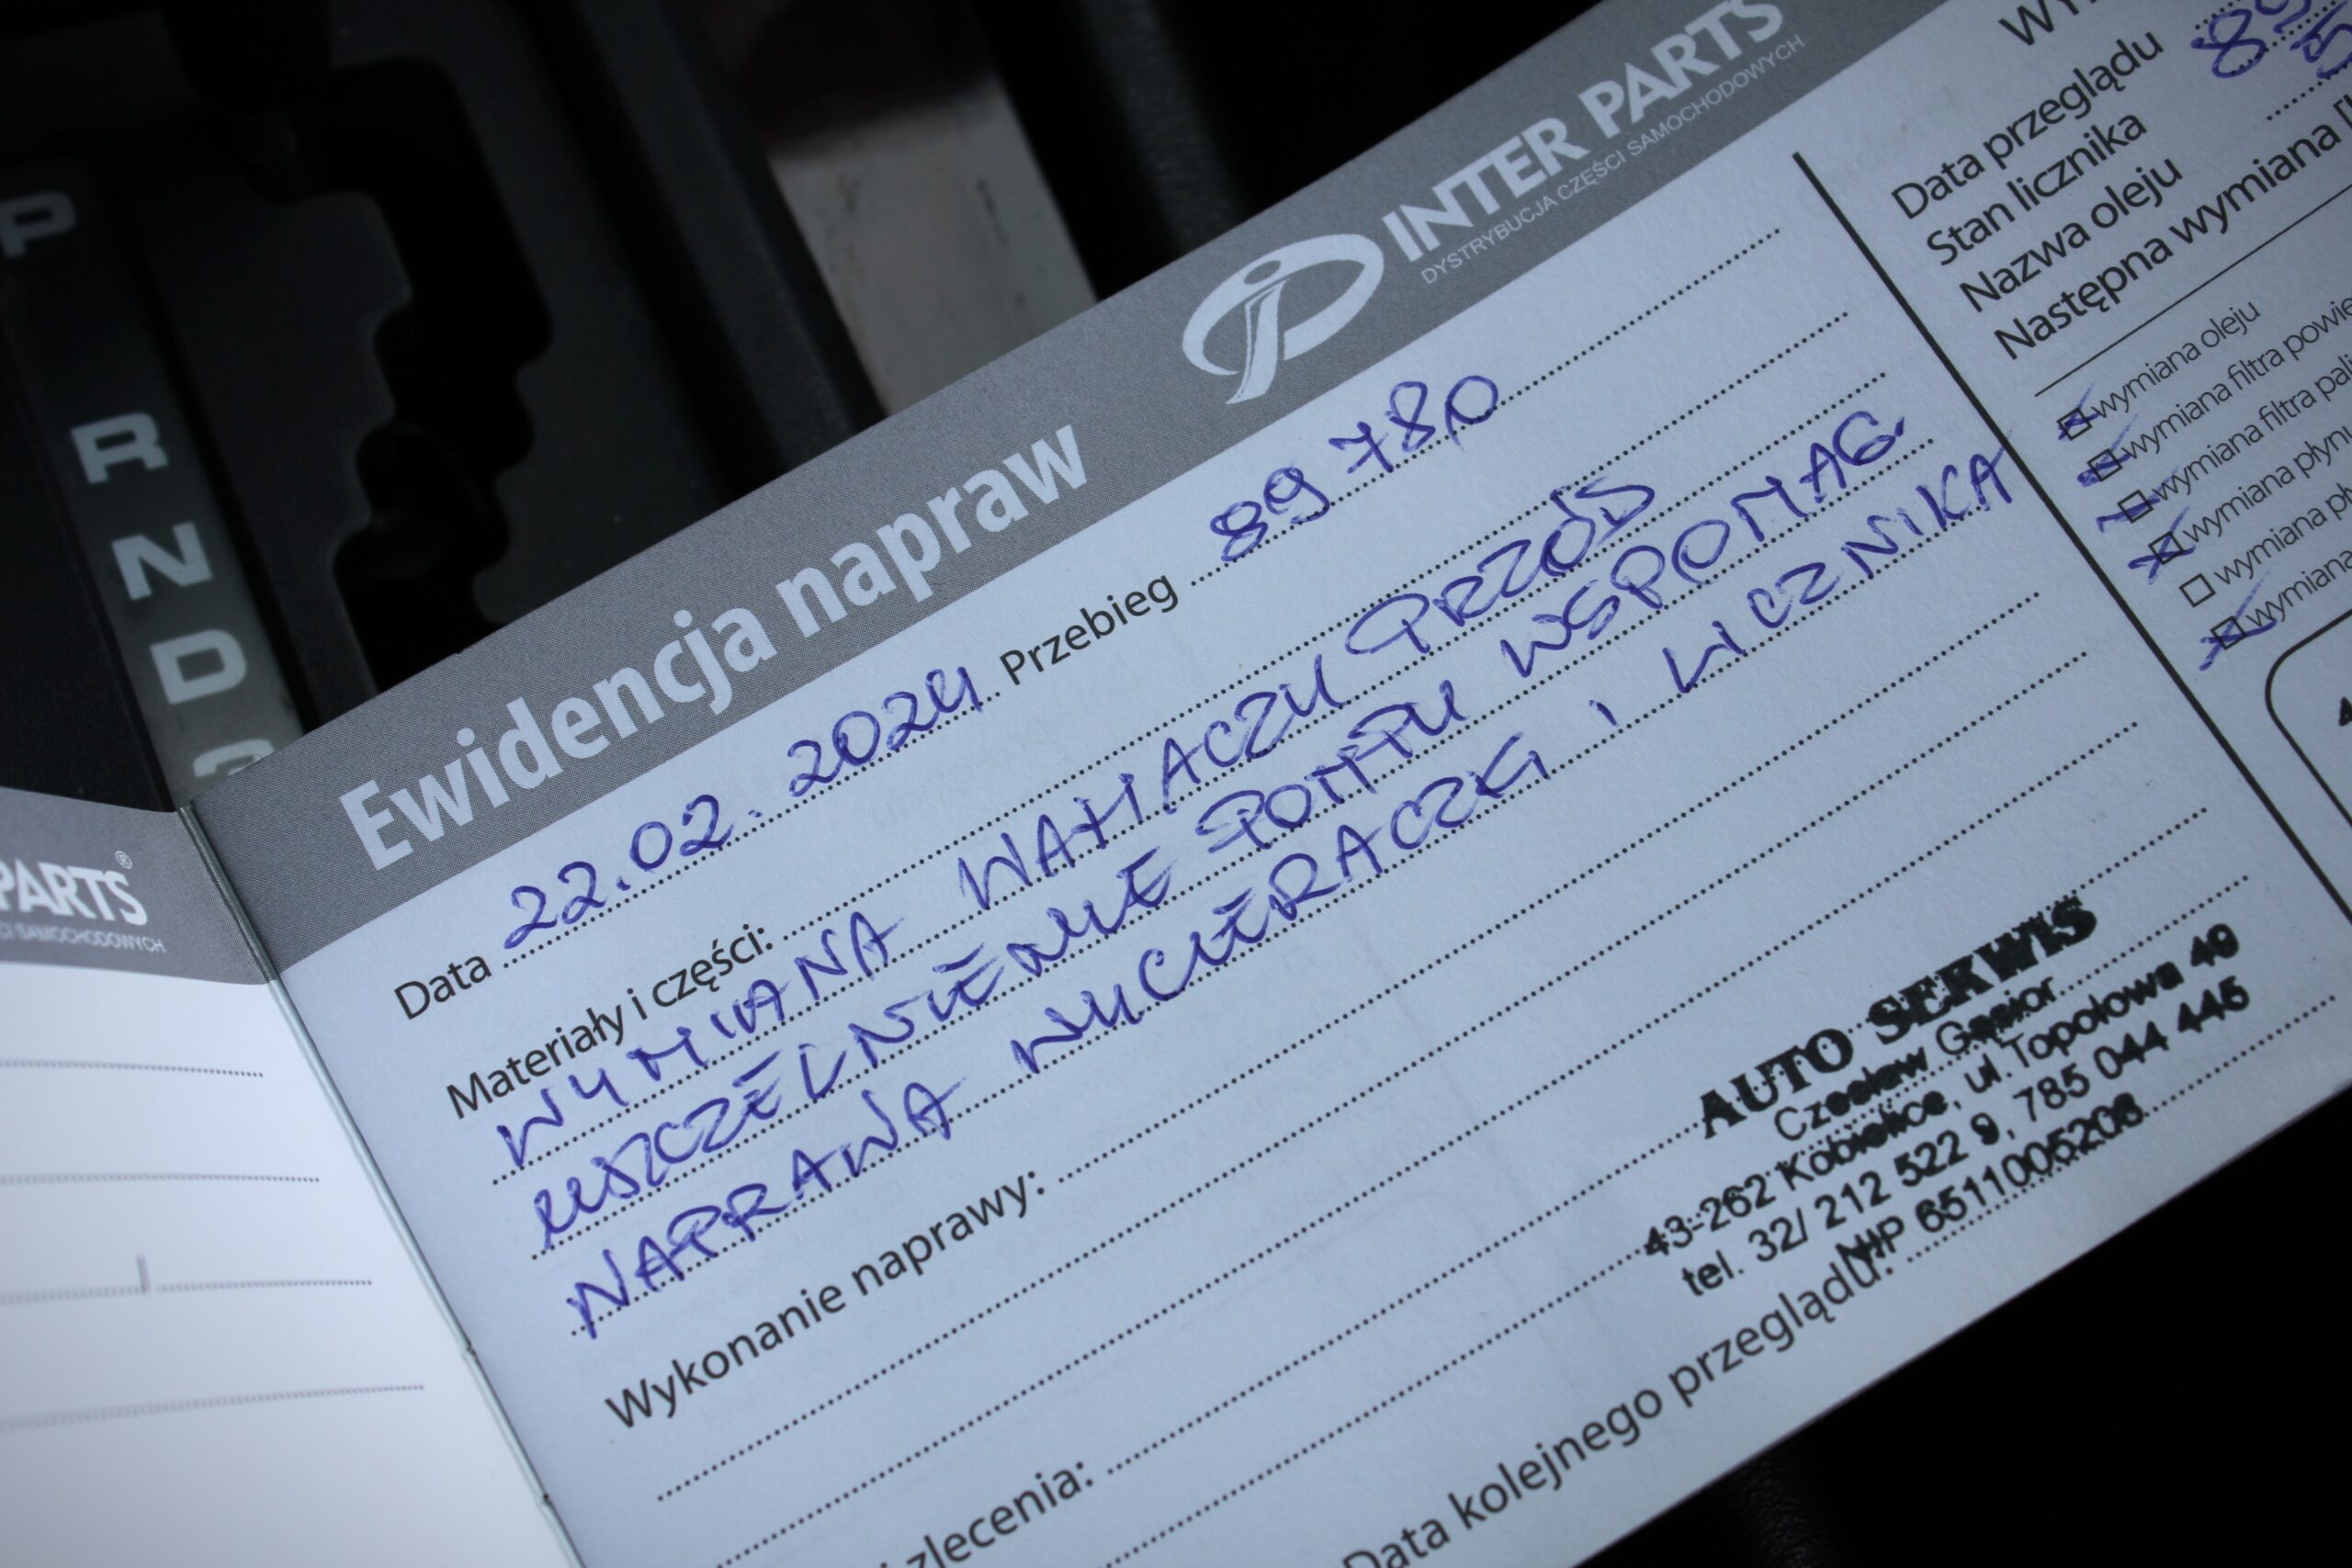 P
R
N
D
3
PARTS®
CI SAMOCHODOWYCH
Ewidencja napraw
INTER PARTS
DYSTRYBUCJA CZĘŚCI SAMOCHODOWYCH
Data 22.02.2024 Przebieg 89 780
Materiały i części:
WYMIANA WAHACZY PRZÓD
USZCZELNIENIE POMPY WSPOMAG.
NAPRAWA WYCIERACZKI I LICZNIKA
Wykonanie naprawy:
zlecenia:
Data kolejnego przeglądu:
AUTO SERWIS
Czesław Gąsior
43-262 Kobielice, ul. Topolowa 49
tel. 32/ 212 522 9, 785 044 445
NIP 6511005208
Data przeglądu
Stan licznika 89
Nazwa oleju
Następna wymiana
wymiana oleju
wymiana filtra
wymiana filtra
wymiana płynu
wymiana
wymiana